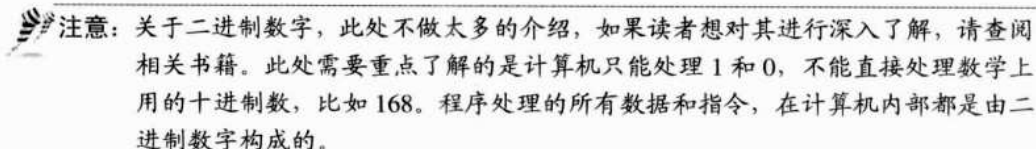 注意：关于二进制数字，此处不做太多的介绍，如果读者想对其进行深入了解，请查阅
相关书籍。此处需要重点了解的是计算机只能处理 1 和 0，不能直接处理数学上
用的十进制数，比如 168。程序处理的所有数据和指令，在计算机内部都是由二
进制数字构成的。